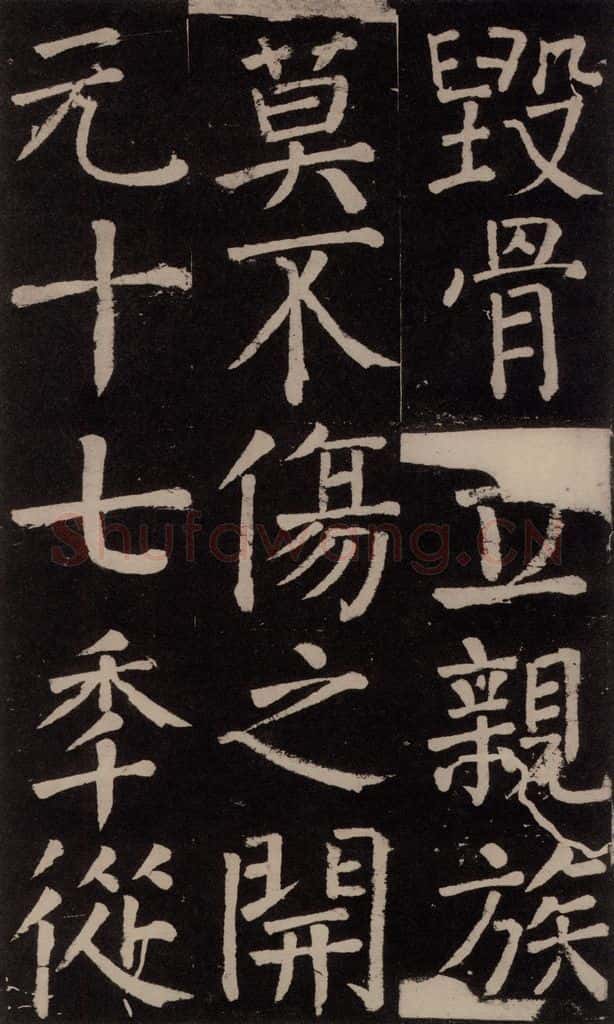 毀骨立親族
莫不傷之開
元十七秊從
Shufawang.CN